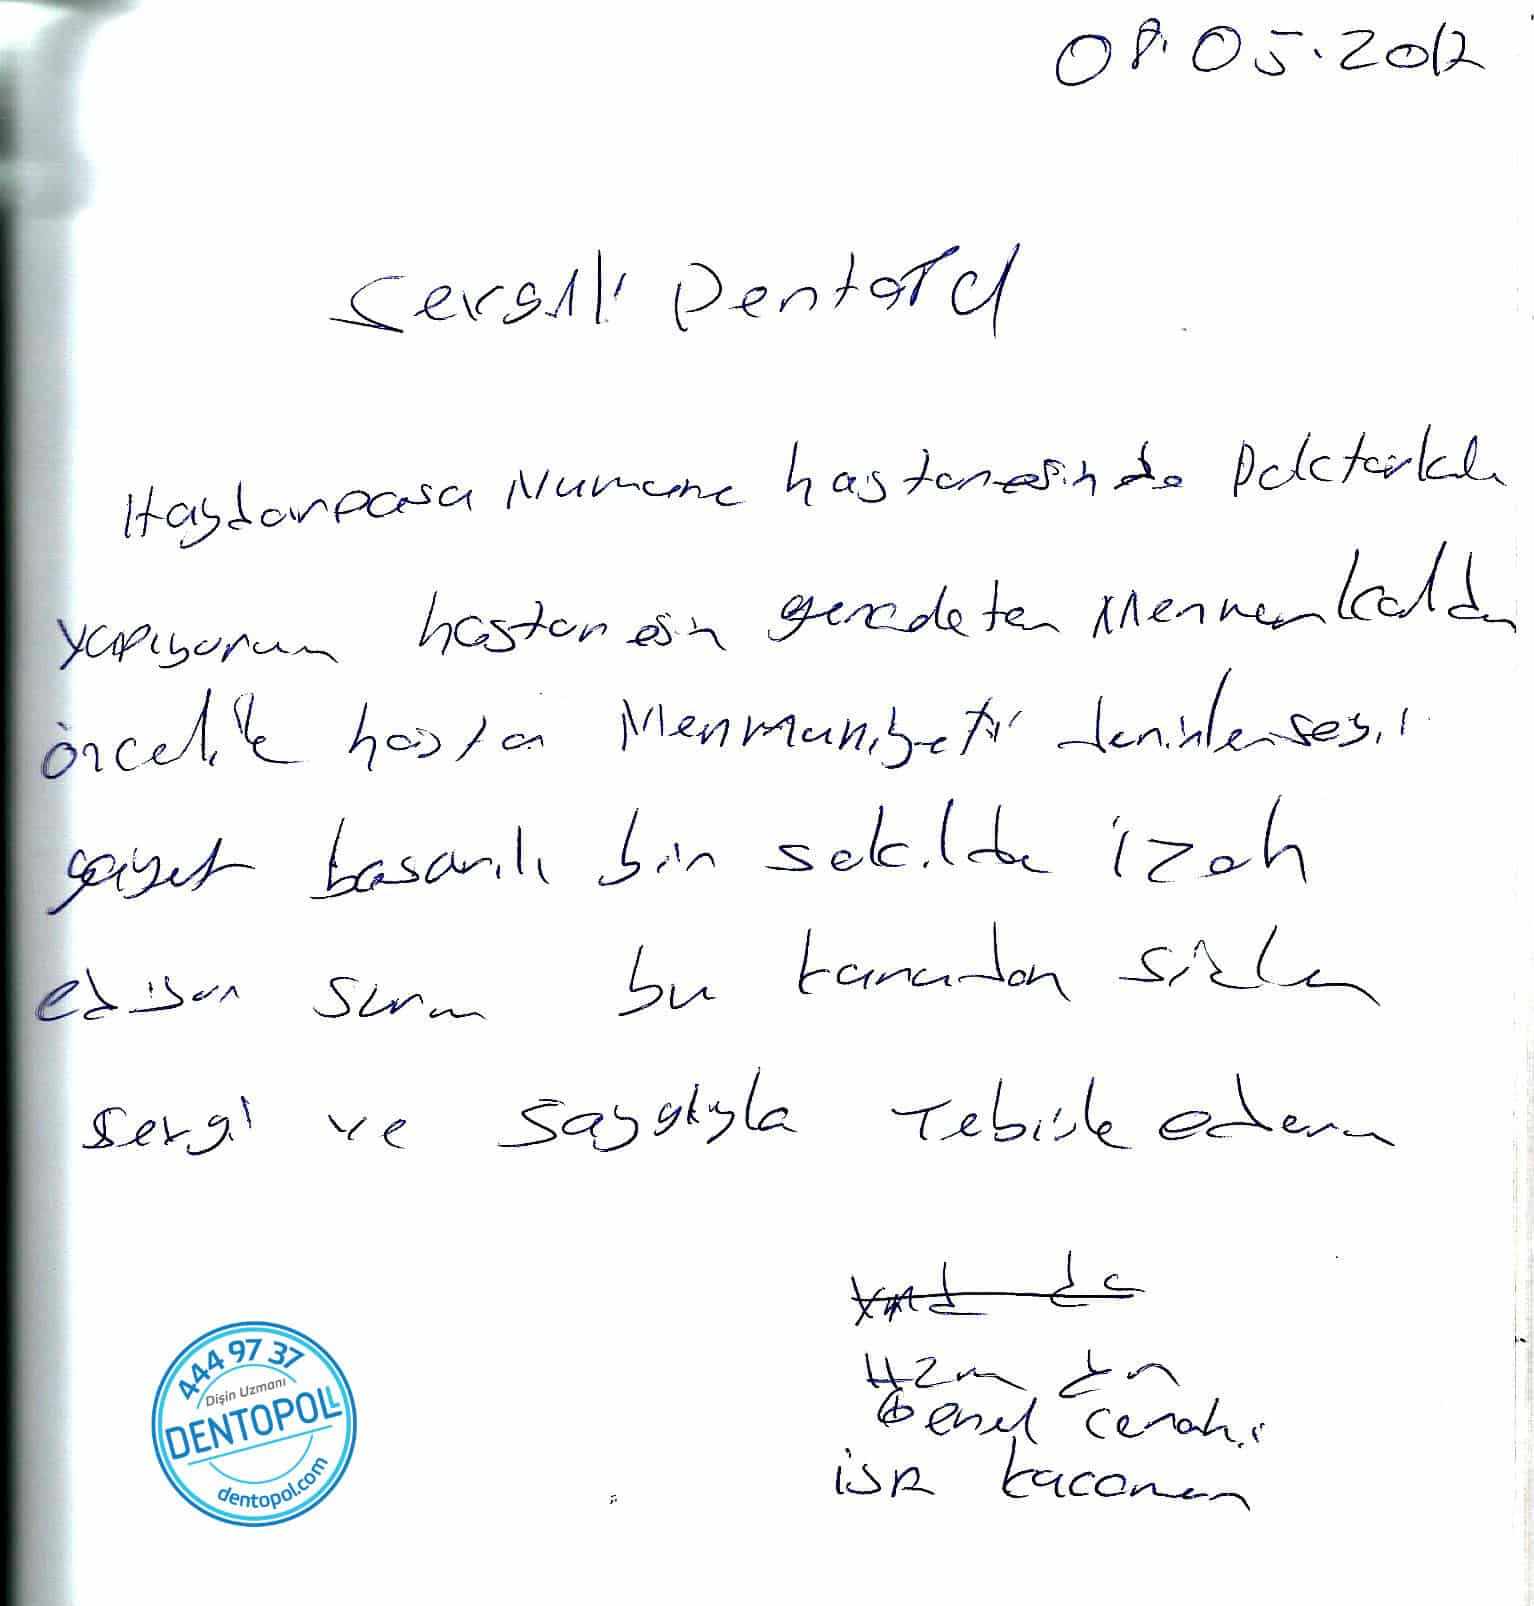 08.05.2012
Sevgili Dentopol
Haydarpasa Numune hastanesinde Doktorluk
yapıyorum hastanesin gercekten Memnun kaldım
öncelik hasta Memnuniyeti denilen seyi
gayet basarılı bir sekilde izah
ediyor sunuz bu konudan sizleri
sevgi ve Saygıyla Tebrik ederim
Genel Cerrahi
444 97 37
Dişin Uzmanı
DENTOPOL
dentopol.com